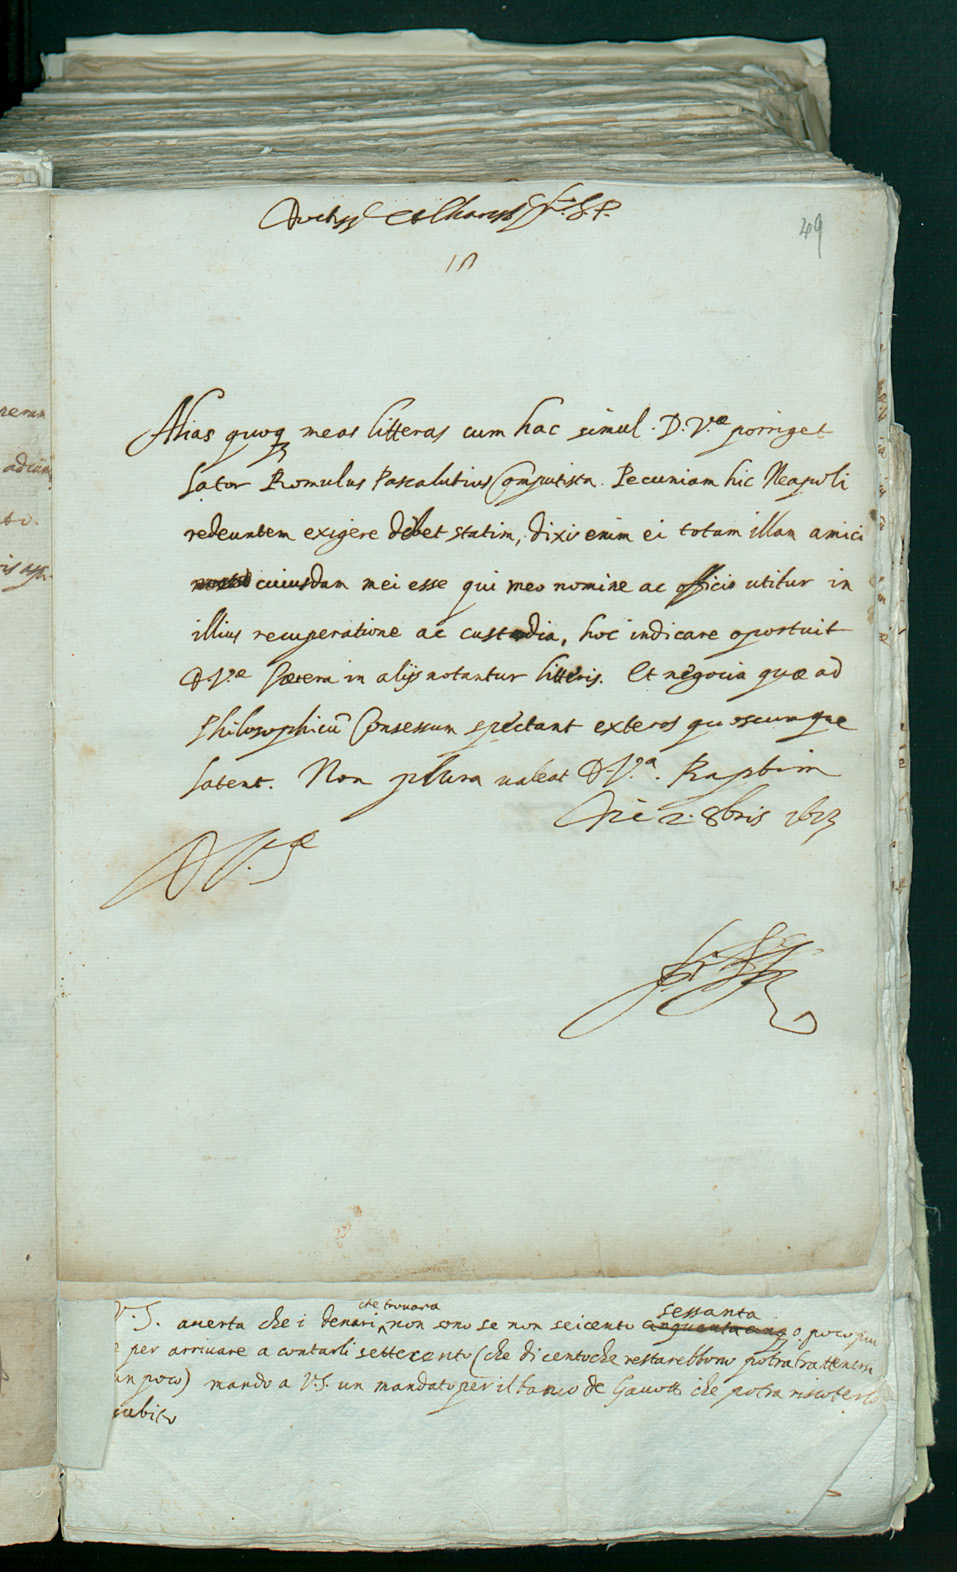 49
Alias quoq meas litteras cum hac simul D. V.æ porriget
Lator Romulus Pascalutius Computista. Pecuniam hic Neapoli
redeuntem exigere debet statim, dixi enim ei totam illam amici
cuiusdam mei esse qui meo nomine ac officio utitur in
illius recuperatione ac custodia, hoc indicare oportuit
D. V.æ Cætera in alijs notantur litteris. Et negocia quæ ad
Philosophicū Consessum spectant exteros quoscumque
latent. Non plura valeat D. V.a. Raptim
2. 8bris 1613
D V.æ
neram
adiūm
V.S. auerta che i denari che trouara non sono se non seicento sessanta o poco piu
e per arriuare a contarli settecento (che di cento che restarebbono potra trattenersi
un poco) mando a V.S. un mandato per il banco de Gauotti che potra riscoterlo
subito